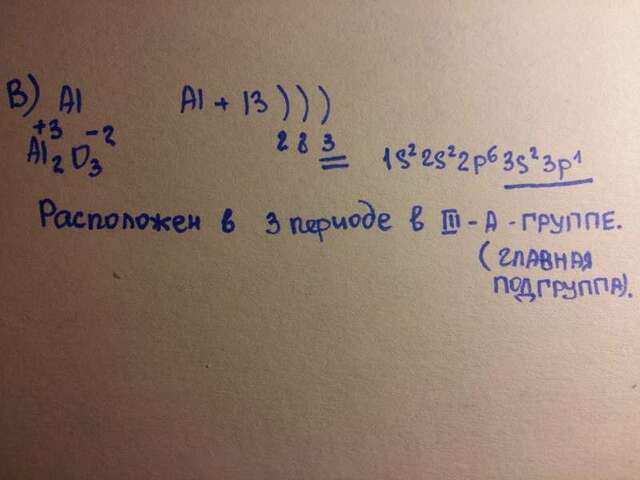 В) Al Al + 13 ) ) )
+3 -2 2 8 3
Al₂O₃ 1s² 2s² 2p⁶ 3s² 3p¹
Расположен в 3 периоде в III - А - ГРУППЕ.
(ГЛАВНАЯ
ПОДГРУППА).